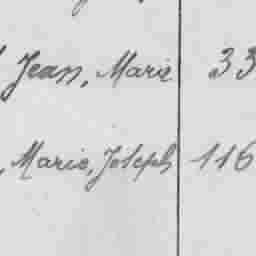 Jean, Marie 33
, Marie, Joseph 116